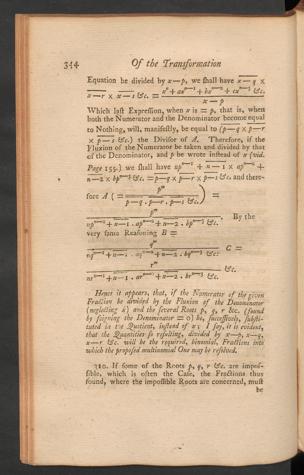 344 Of the Transformation
Equation be divided by x—p, we shall have x—q ×
x—r × x—s &c. = x^n + ax^{n—1} + bx^{n—2} + cx^{n—3} &c. / x—p
Which last Expression, when x is = p, that is, when
both the Numerator and the Denominator become equal
to Nothing, will, manifestly, be equal to (p—q × p—r
× p—s &c.) the Divisor of A. Therefore, if the
Fluxion of the Numerator be taken and divided by that
of the Denominator, and p be wrote instead of x (vid.
Page 155.) we shall have np^{n—1} + n—1 × ap^{n—2} +
n—2 × bp^{n—3} &c. = p—q × p—r × p—s &c. and there-
fore A ( = p^m / p—q . p—r . p—s &c. ) =
p^m / np^{n—1} + n—1 . ap^{n—2} + n—2 . bp^{n—3} &c. By the
very same Reasoning B =
q^m / nq^{n—1} + n—1 . aq^{n—2} + n—2 . bq^{n—3} &c. C =
r^m / nr^{n—1} + n—1 . ar^{n—2} + n—2 . br^{n—3} &c. &c.
Hence it appears, that, if the Numerator of the given
Fraction be divided by the Fluxion of the Denominator
(neglecting ẋ) and the several Roots p, q, r &c. (found
by feigning the Denominator = 0) be, successively, substi-
tuted in the Quotient, instead of x; I say, it is evident,
that the Quantities so resulting, divided by x—p, x—q,
x—r &c. will be the required, binomial, Fractions into
which the proposed multinomial One may be resolved.
310. If some of the Roots p, q, r &c. are impos-
sible, which is often the Case, the Fractions thus
found, where the impossible Roots are concerned, must
be